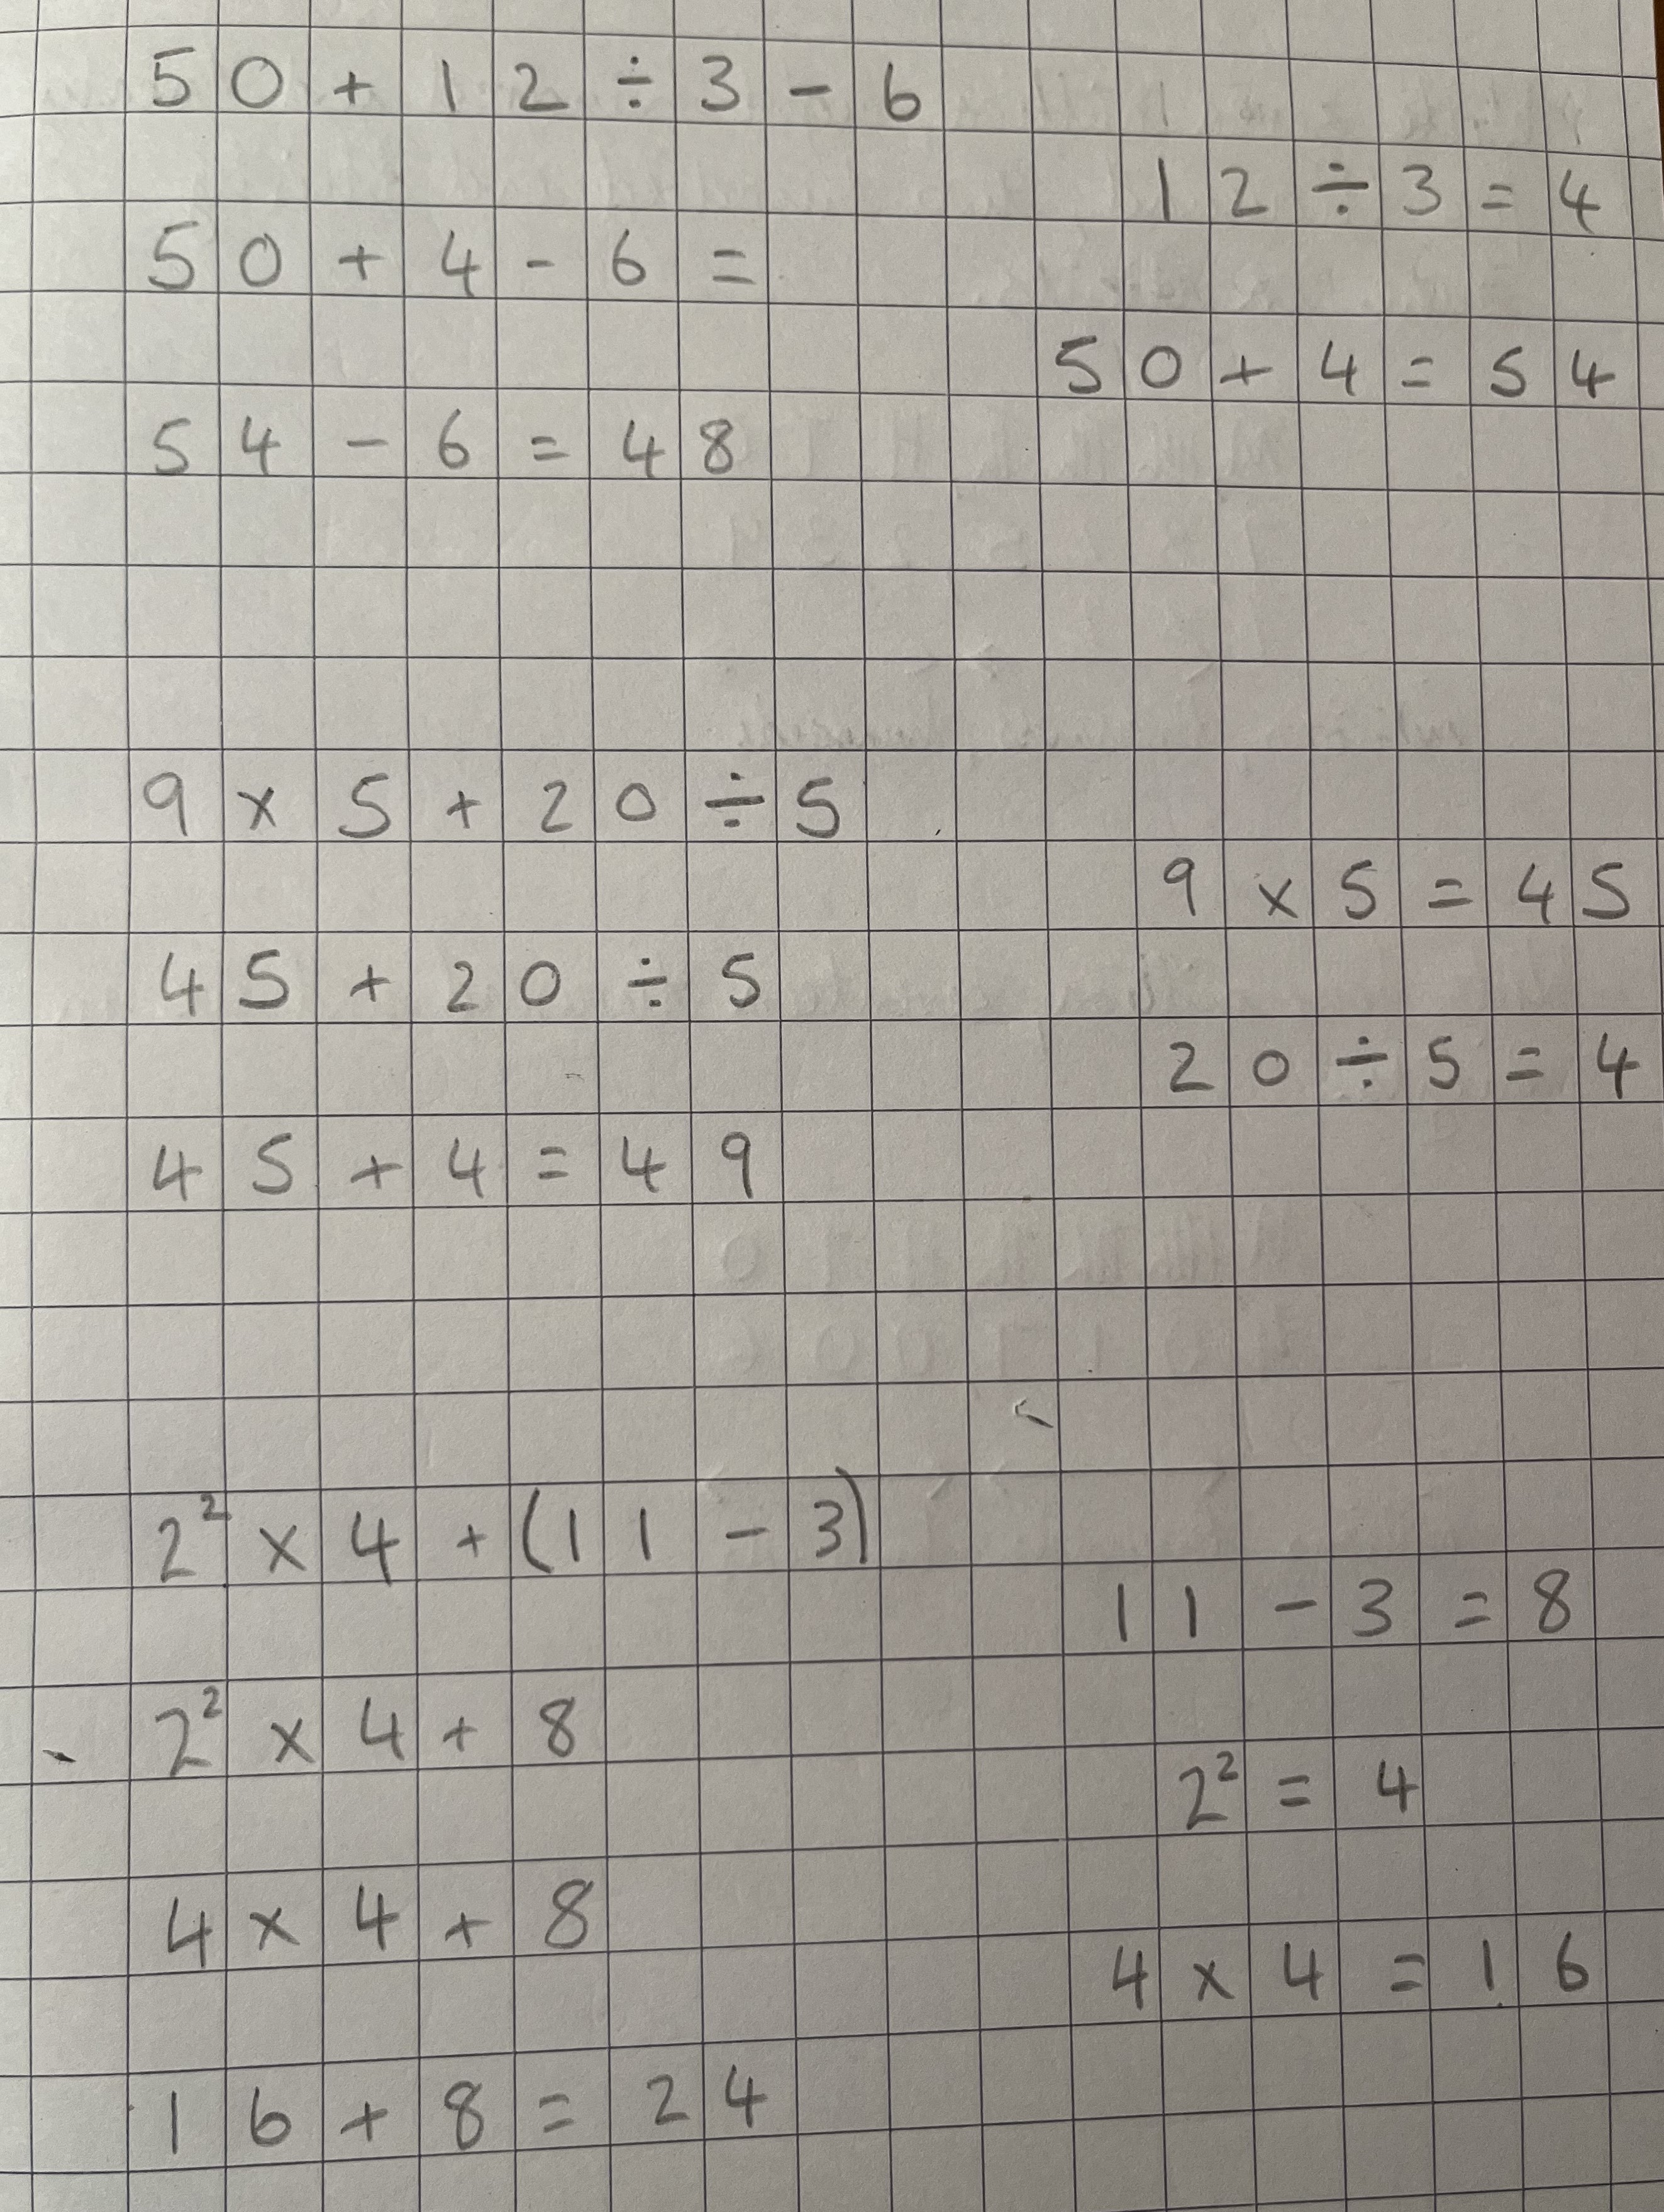 50 + 12 ÷ 3 - 6
12 ÷ 3 = 4
50 + 4 - 6 =
50 + 4 = 54
54 - 6 = 48
9 × 5 + 20 ÷ 5
9 × 5 = 45
45 + 20 ÷ 5
20 ÷ 5 = 4
45 + 4 = 49
2² × 4 + (11 - 3)
11 - 3 = 8
2² × 4 + 8
2² = 4
4 × 4 + 8
4 × 4 = 16
16 + 8 = 24